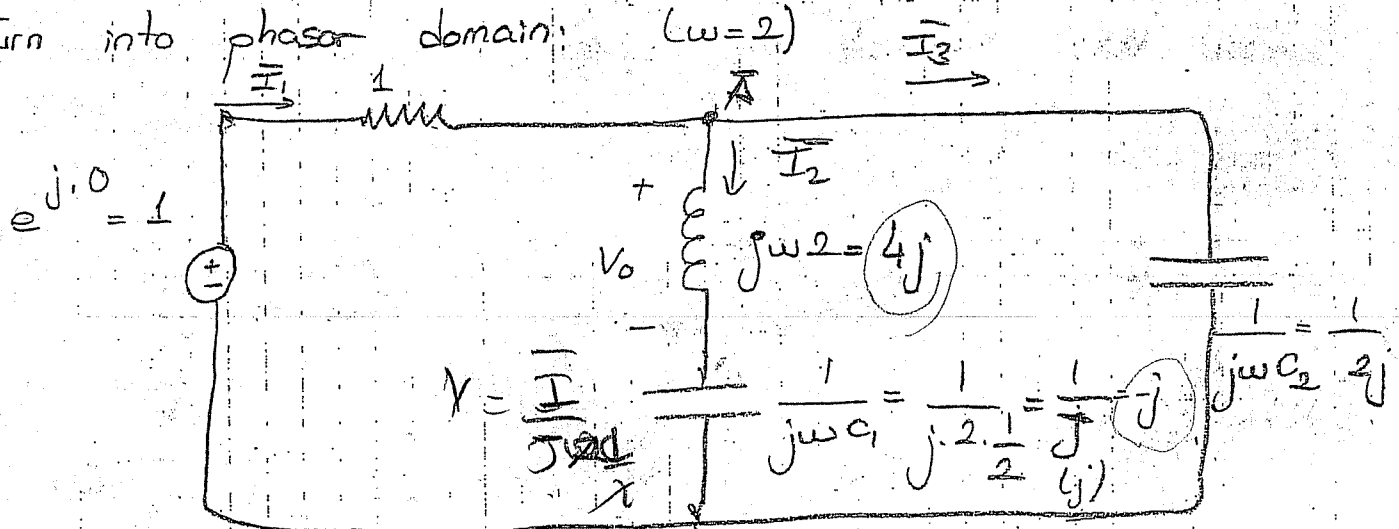 urn into phasor domain: (ω=2)
I̅₁ 1 A̅ I̅₃
I̅₂
e^{j.0} = 1
+
V₀ jω2 = 4j
−
V = I̅ / jω 1/(jωC₁) = 1/(j.2.1/2) = 1/j = -j
(j)
1/(jωC₂) = 1/2j